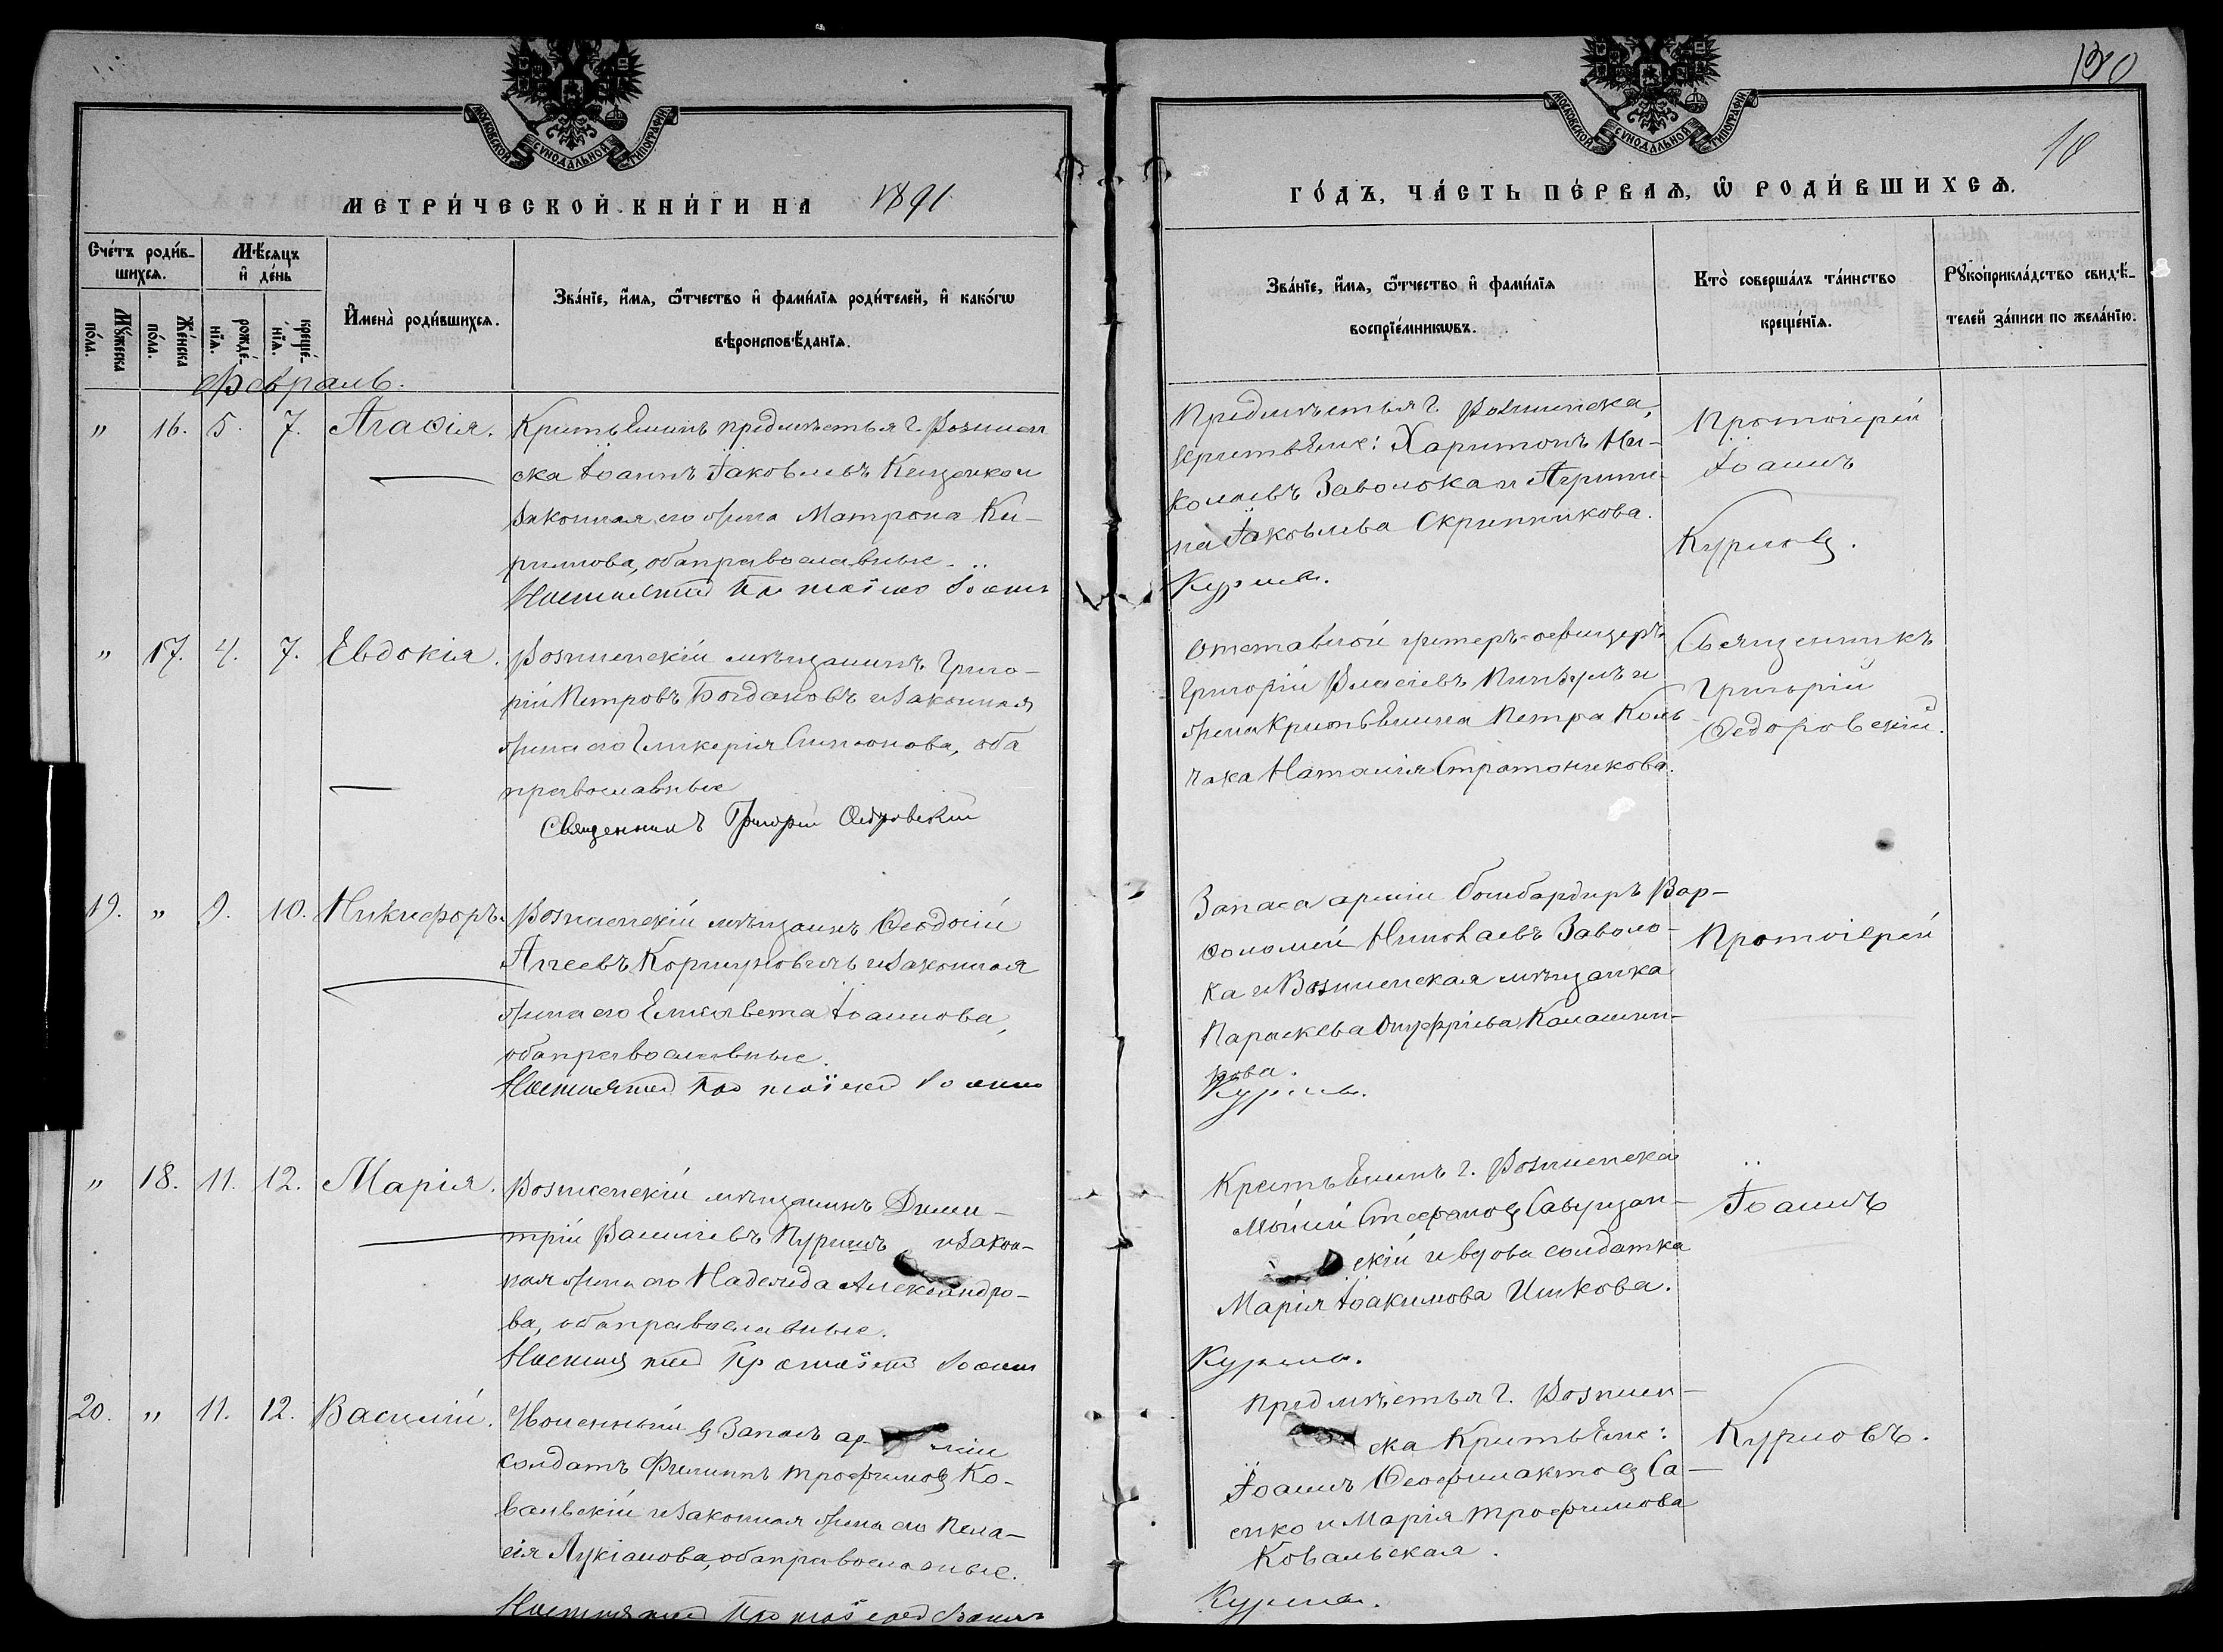 МОСКОВСКОЙ СѴНОДАЛЬНОЙ ТИПОГРАФІИ
МЕТРИ́ЧЕСКОЙ КНИ́ГИ НА 1891
Сче́тъ роди́вшихсѧ.
Мꙋ́жеска по́ла.
Же́нска по́ла.
Мѣ́сѧцъ и҆ де́нь
рожде́нїѧ.
креще́нїѧ.
И҆мена̀ роди́вшихсѧ.
Зва́нїе, и҆́мѧ, ѻ҆́тчество и҆ фами́лїѧ роди́телей, и҆ како́гѡ
вѣроисповѣ́данїѧ.
Февраль.
" 16. 5. 7. Агаѳія. Крестьянинъ предмѣстья г. Вознесен
ска Іоаннъ Іаковлевъ
Законная его жена Матрона Ки-
риллова, оба православные.
Настоятель Протоіерей Іоаннъ
" 17. 4. 7. Евдокія. Вознесенскій мѣщанинъ Григо-
рій Петровъ Богдановъ и законная
жена его Гликерія Симеонова, оба
православные
Священникъ Григорій Ѳедоровскій
19. " 9. 10. Никифоръ. Вознесенскій мѣщанинъ Ѳеодосій
Аггеевъ и законная
жена его Елисавета Іоаннова,
оба православные.
Настоятель Протоіерей Іоаннъ
" 18. 11. 12. Марія. Вознесенскій мѣщанинъ Дими-
трій Васильевъ и закон-
ная жена его Надежда Александро-
ва, оба православные.
Настоятель Протоіерей Іоаннъ
20. " 11. 12. Василій. Уволенный въ запасъ ар- міи
солдатъ Филиппъ Трофимовъ Ко-
вальскій и законная жена его Пела-
гія Лукіанова, оба православные.
Настоятель Протоіерей Іоаннъ
130
10
МОСКОВСКОЙ СѴНОДАЛЬНОЙ ТИПОГРАФІИ
ГО́ДЪ, ЧА́СТЬ ПЕ́РВАѦ, Ѡ҆ РОДИ́ВШИХСѦ.
Зва́нїе, и҆́мѧ, ѻ҆́тчество и҆ фами́лїѧ
воспрїе́мникѡвъ.
Кто̀ соверша́лъ та́инство
креще́нїѧ.
Рꙋкоприкла́дство свидѣ́-
телей за́писи по жела́нїю.
Предмѣстья г. Вознесенска,
крестьяне: Харитонъ Ни-
колаевъ Заволока и Агрипи-
на Іаковлева Скрипникова.
Курловъ.
Протоіерей
Іоаннъ
Курловъ.
Отставной унтеръ-офицеръ
Григорій Власіевъ и
жена крестьянина Петра Коль
чака Наталія Стратоникова.
Священникъ
Григорій
Ѳедоровскій.
Запаса арміи бомбардиръ Вар-
ѳоломей Николаевъ Заволо-
ка и Вознесенская мѣщанка
Параскева Онуфріева Калашни-
кова.
Курловъ.
Протоіерей
Крестьянинъ г. Вознесенска
Моисей Стефановъ
скій и вдова солдатка
Марія Іоакимова
Курловъ.
Іоаннъ
Предмѣстья г. Вознесен-
ска крестьяне:
Іоаннъ Ѳеофилактовъ Са-
енко и Марія Трофимова
Ковальская.
Курловъ.
Курловъ.